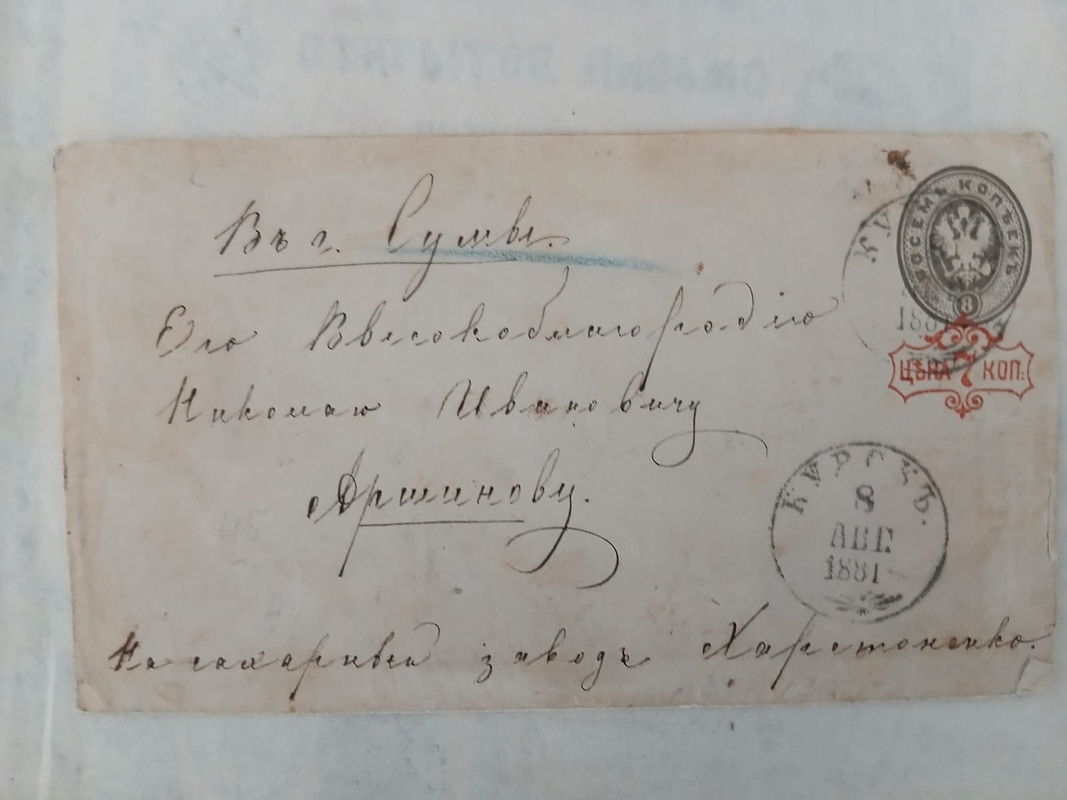 Въ г. Сумы.
Его Высокоблагородію
Николаю Ивановичу
Аршинову.
На сахарный заводъ Харитоненко.
ВОСЕМЬ КОПѢЕКЪ
8
ЦѢНА 7 КОП.
1881
КУРСКЪ.
8
АВГ.
1881